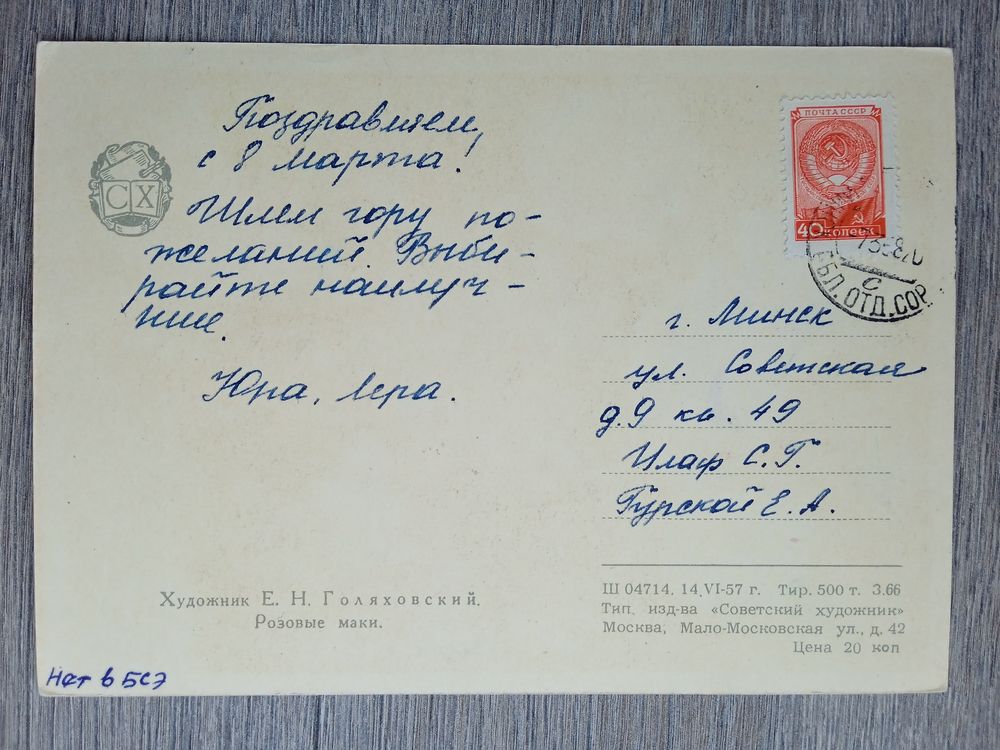 Поздравляем,
с 8 марта!
Шлем гору по-
желаний. Выби-
райте наилуч-
шие.
Юра, Лера.
СХ
ПОЧТА СССР
40 копеек
ОТД. СОР
г. Минск
ул. Советская
д. 9 кв. 49
С. Г.
Гурской Е. А.
Художник Е. Н. Голяховский.
Розовые маки.
Ш 04714. 14.VI-57 г. Тир. 500 т. З.66
Тип. изд-ва «Советский художник»
Москва, Мало-Московская ул., д. 42
Цена 20 коп
Нет в БСЭ